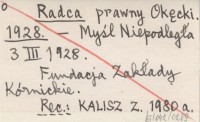 o Radca prawny Okęcki.
1928. — Myśl Niepodległa
3 III 1928.
Fundacja Zakłady
Kórnickie.
Rec.: KALISZ Z. 1980 a.